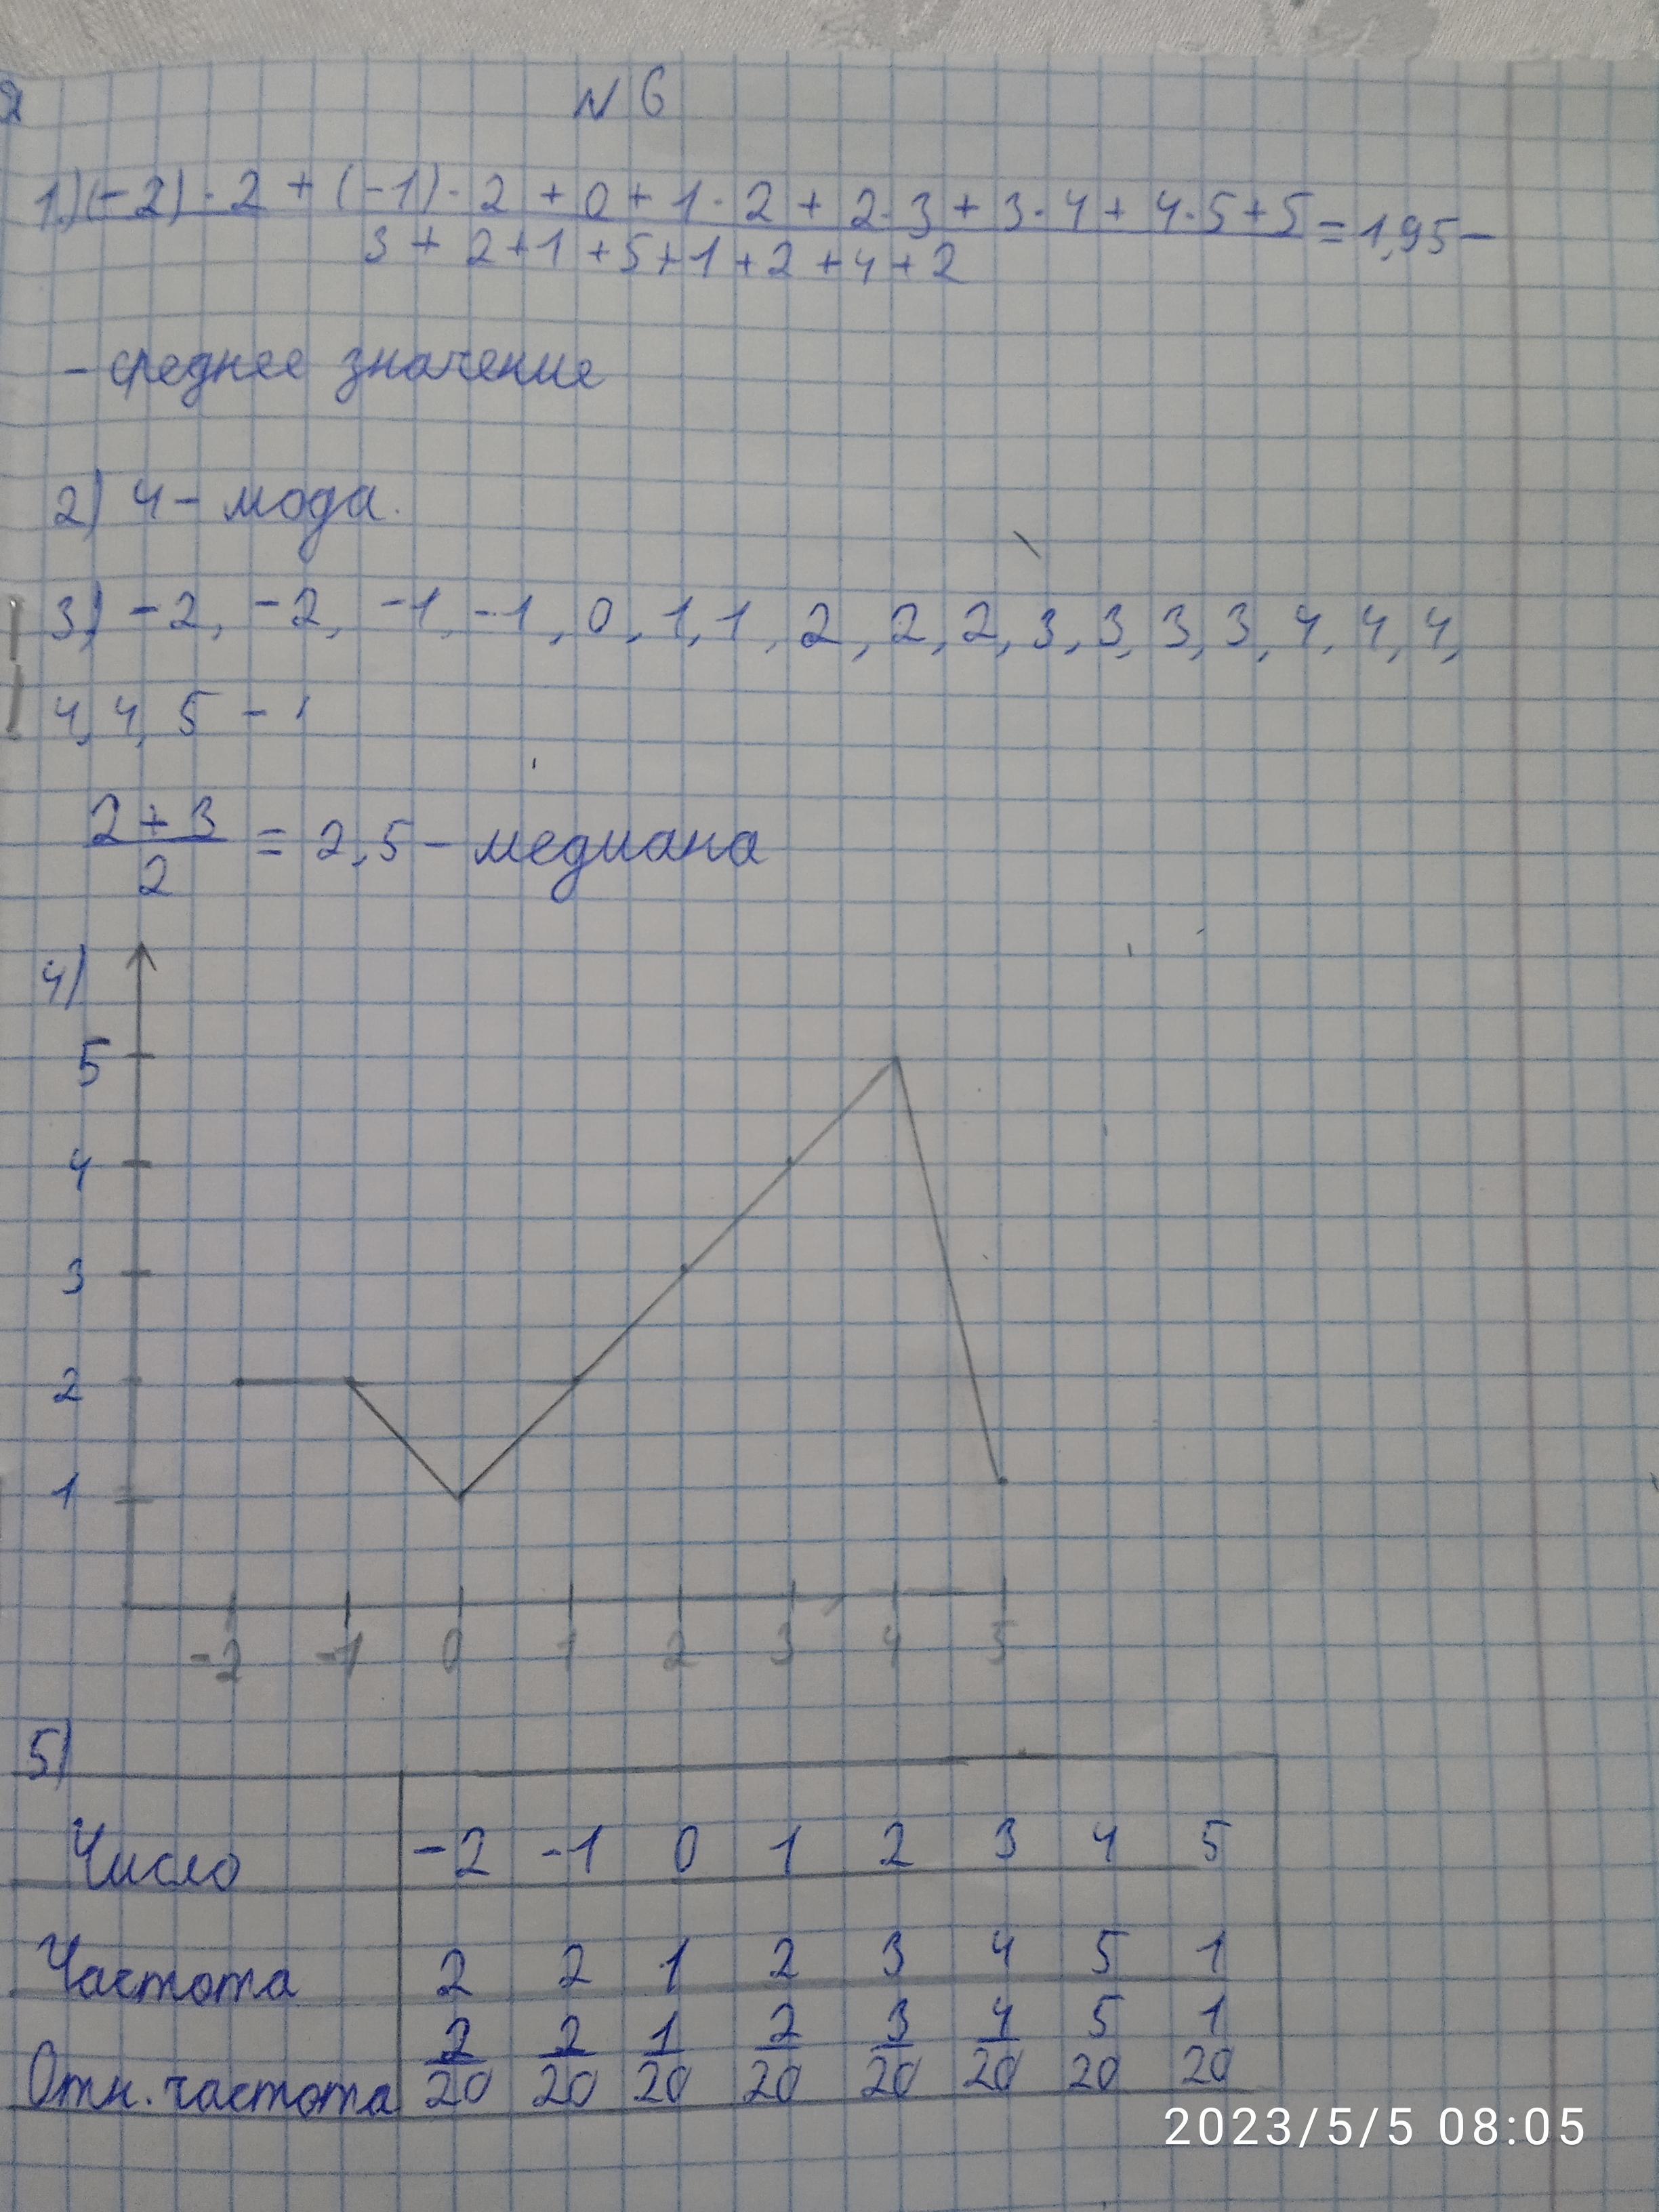 я
N 6
1.) (-2) · 2 + (-1) · 2 + 0 + 1 · 2 + 2 · 3 + 3 · 4 + 4 · 5 + 5 = 1,95 -
3 + 2 + 1 + 5 + 1 + 2 + 4 + 2
- среднее значение
2) 4 - мода.
3) -2, -2, -1, -1, 0, 1, 1, 2, 2, 2, 3, 3, 3, 3, 4, 4, 4,
4, 4, 5 -
2 + 3
2
= 2,5 - медиана
4)
5
4
3
2
1
-2 -1 0 1 2 3 4 5
5)
Число -2 -1 0 1 2 3 4 5
Частота 2 2 1 2 3 4 5 1
Отн. частота 2/20 2/20 1/20 2/20 3/20 4/20 5/20 1/20
2023/5/5 08:05